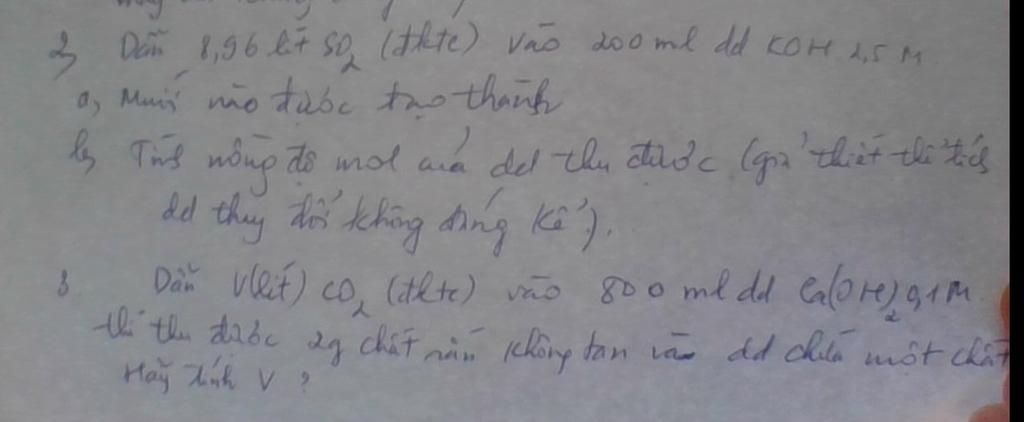 2, Dẫn 8,96 lít SO2 (đktc) vào 200 ml dd KOH 2,5 M
a, Muối nào được tạo thành
b, Tính nồng độ mol của dd thu được (giả thiết thể tích
dd thay đổi không đáng kể).
3 Dẫn V(lít) CO2 (đktc) vào 800 ml dd Ca(OH)2 0,1M
thì thu được 2g chất rắn không tan và dd chứa một chất
Hãy tính V ?